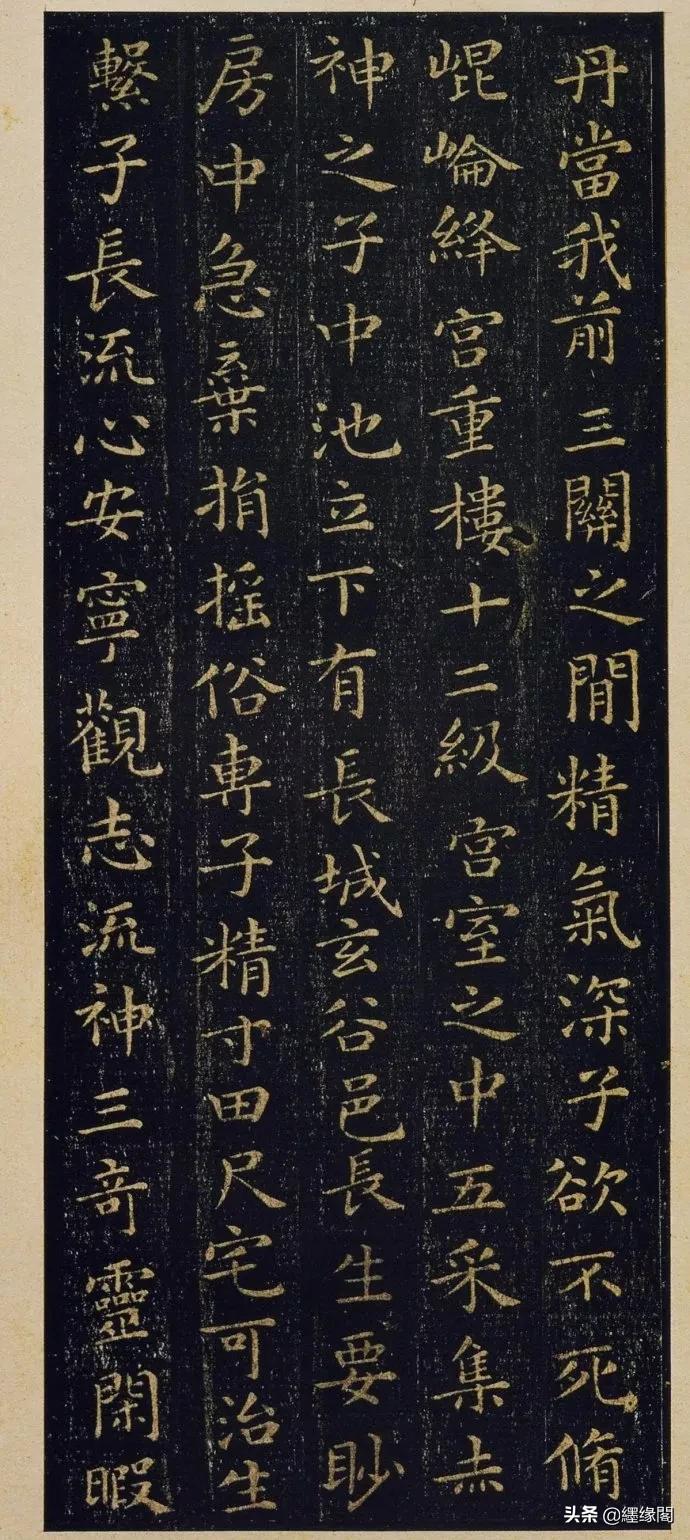 丹當我前三關之間精氣深子欲不死脩
崐崘絳宮重樓十二級宮室之中五采集赤
神之子中池立下有長城玄谷邑長生要眇
房中急棄捐搖俗專子精寸田尺宅可治生
繫子長流心安寧觀志流神三奇靈閑暇
头条 @纆缘閣